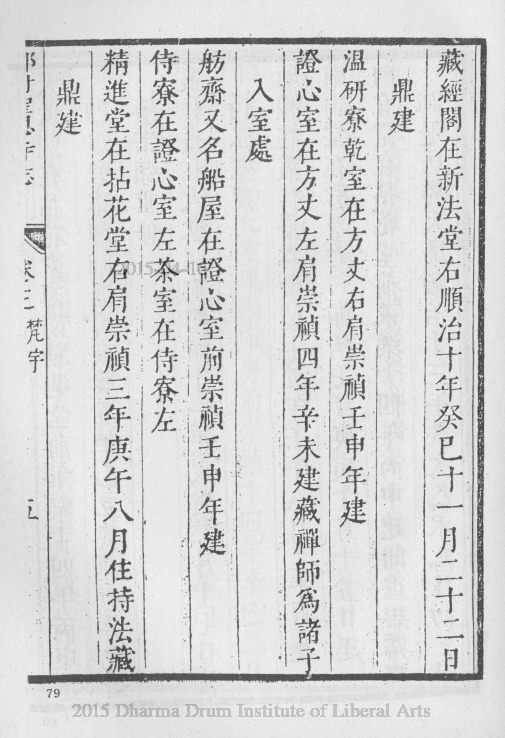 藏經閣在新法堂右順治十年癸巳十一月二十一日
鼎建
溫研寮乾室在方丈右肩崇禎壬申年建
證心室在方丈左肩崇禎四年辛未建藏禪師爲諸子
入室處
舫齋又名船屋在證心室前崇禎壬申年建
侍寮在證心室左茶室在侍寮左
精進堂在拈花堂右肩崇禎三年庚午八月住持法藏
鼎建
寺志
卷三
梵宇
五
79
2015-04-16
2015 Dharma Drum Institute of Liberal Arts